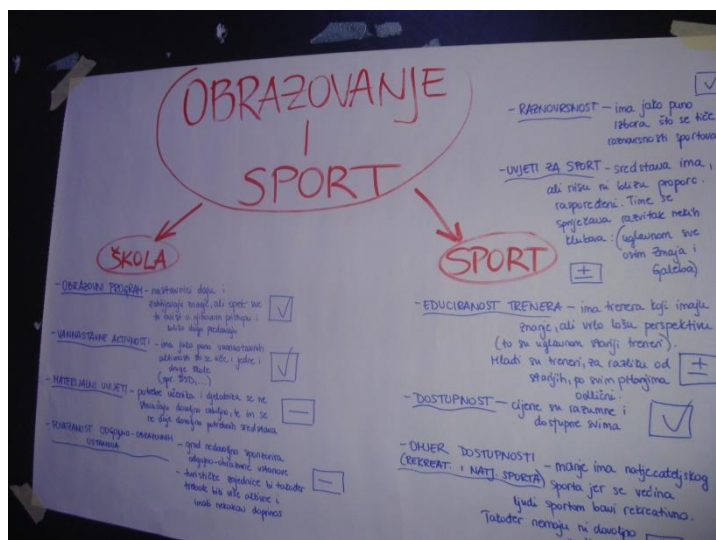 OBRAZOVANJE
I
SPORT
ŠKOLA
- OBRAZOVNI PROGRAM - nastavnici daju i
znanje, ali opet sve
to ovisi o njihovom pristupu i
- VANNASTAVNE AKTIVNOSTI - ima jako puno vannastavnih
aktivnosti što se tiče i jedne i
druge škole
- MATERIJALNI UVJETI - potrebe učenika i djelatnika se ne
shvaćaju dovoljno ozbiljno, te im se
ne daje dovoljno potrebnih sredstava
- POVEZANOST ODGOJNO-OBRAZOVNIH
USTANOVA
- grad nedovoljno sponzorira
odgojno-obrazovne ustanove
- turističke zajednice bi također
trebale biti više aktivne i
imati nekakav doprinos
SPORT
- RAZNOVRSNOST - ima jako puno
izbora što se tiče
raznovrsnosti sportova
- UVJETI ZA SPORT - sredstava ima,
ali nisu ni blizu proporc.
raspoređeni. Time se
sprječava razvitak nekih
klubova :( (uglavnom sve
osim Zmaja i
Galeba)
±
- EDUCIRANOST TRENERA - ima trenera koji imaju
znanje, ali vrlo lošu perspektivu
(to su uglavnom stariji treneri).
Mladi su treneri, za razliku od
starijih, po svim pitanjima
odlični.
±
- DOSTUPNOST - cijene su razumne i
dostupne svima
- OMJER DOSTUPNOSTI
(REKREAT. I NATJ. SPORTA) - manje ima natjecateljskog
sporta jer se većina
ljudi sportom bavi rekreativno.
Također nemaju ni dovoljno